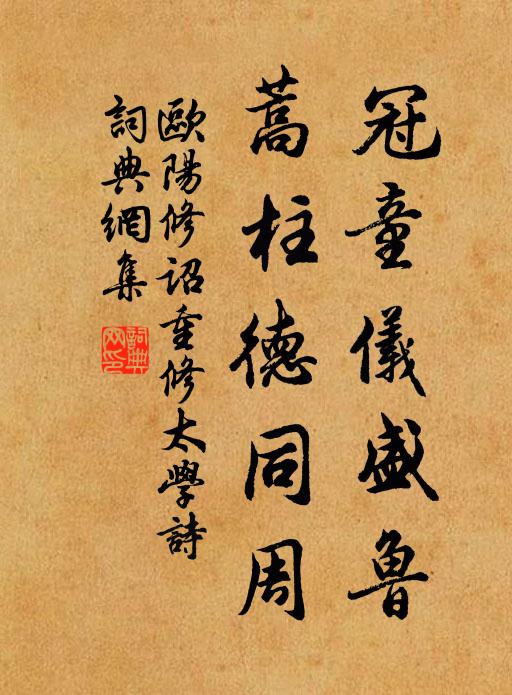 冠童儀盛魯
蒿柱德同周
歐陽修詔重修太學詩
詞典網集
詞典网印